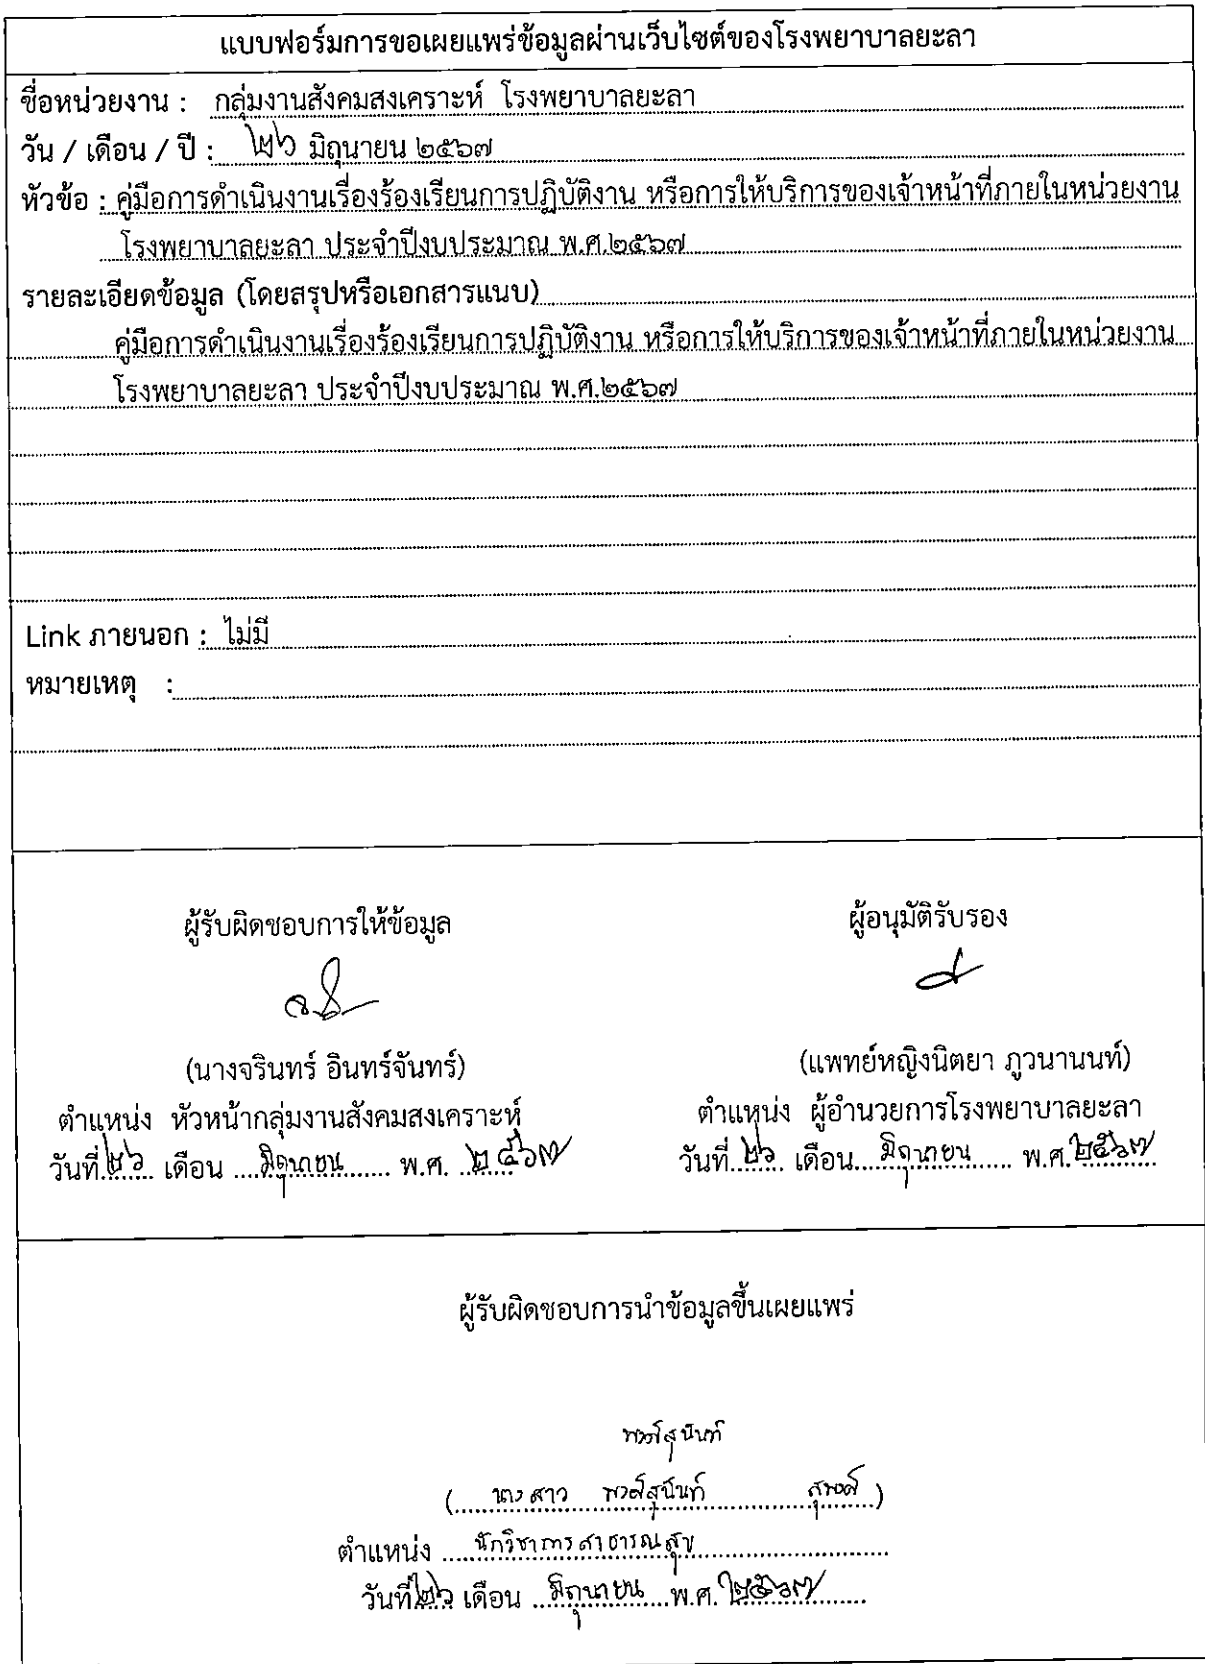 แบบฟอร์มการขอเผยแพร่ข้อมูลผ่านเว็บไซต์ของโรงพยาบาลยะลา
ชื่อหน่วยงาน : กลุ่มงานสังคมสงเคราะห์ โรงพยาบาลยะลา
วัน / เดือน / ปี : ๒๖ มิถุนายน ๒๕๖๗
หัวข้อ : คู่มือการดำเนินงานเรื่องร้องเรียนการปฏิบัติงาน หรือการให้บริการของเจ้าหน้าที่ภายในหน่วยงาน
โรงพยาบาลยะลา ประจำปีงบประมาณ พ.ศ.๒๕๖๗
รายละเอียดข้อมูล (โดยสรุปหรือเอกสารแนบ)
คู่มือการดำเนินงานเรื่องร้องเรียนการปฏิบัติงาน หรือการให้บริการของเจ้าหน้าที่ภายในหน่วยงาน
โรงพยาบาลยะลา ประจำปีงบประมาณ พ.ศ.๒๕๖๗
Link ภายนอก : ไม่มี
หมายเหตุ :
ผู้รับผิดชอบการให้ข้อมูล
(นางจรินทร์ อินทร์จันทร์)
ตำแหน่ง หัวหน้ากลุ่มงานสังคมสงเคราะห์
วันที่ ๒๖ เดือน มิถุนายน พ.ศ. ๒๕๖๗
ผู้อนุมัติรับรอง
(แพทย์หญิงนิตยา ภูวนานนท์)
ตำแหน่ง ผู้อำนวยการโรงพยาบาลยะลา
วันที่ ๒๖ เดือน มิถุนายน พ.ศ. ๒๕๖๗
ผู้รับผิดชอบการนำข้อมูลขึ้นเผยแพร่
(นางสาว )
ตำแหน่ง นักวิชาการสาธารณสุข
วันที่ ๒๖ เดือน มิถุนายน พ.ศ. ๒๕๖๗